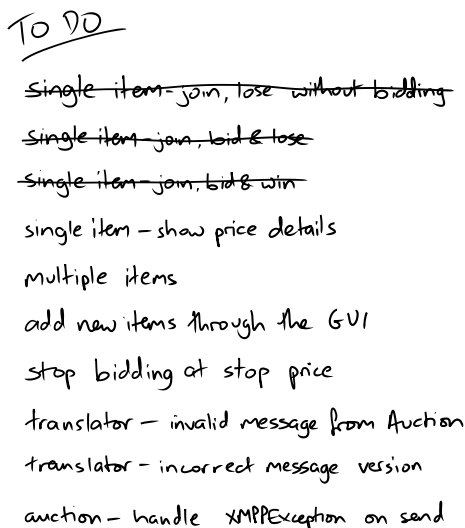 TO DO
single item - join, lose without bidding
single item - join, bid & lose
single item - join, bid & win
single item - show price details
multiple items
add new items through the GUI
stop bidding at stop price
translator - invalid message from Auction
translator - incorrect message version
auction - handle XMPPException on send